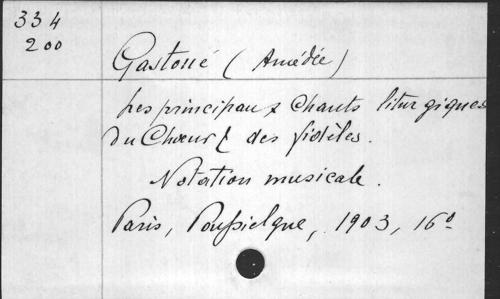 334
200
Gastoué (Amédée)
Les principaux Chants liturgiques
du Chœur & des fidèles.
Notation musicale.
Paris, Poussielgue, 1903, 16º